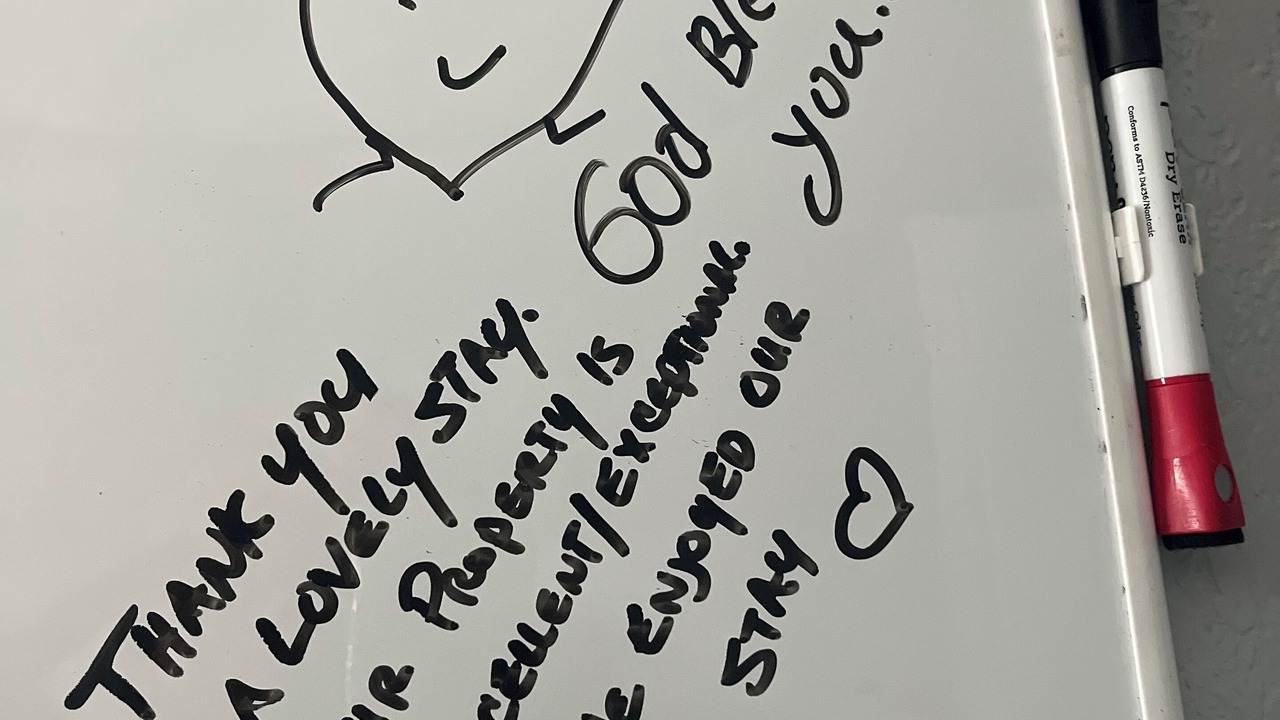 God Ble
you..
THANK YOU
A LOVELY STAY.
UR PROPERTY IS
CELLENT/EXCEPTIONAL.
E ENJOYED OUR
STAY
Dry Erase
Conforms to ASTM D4236/Nontoxic